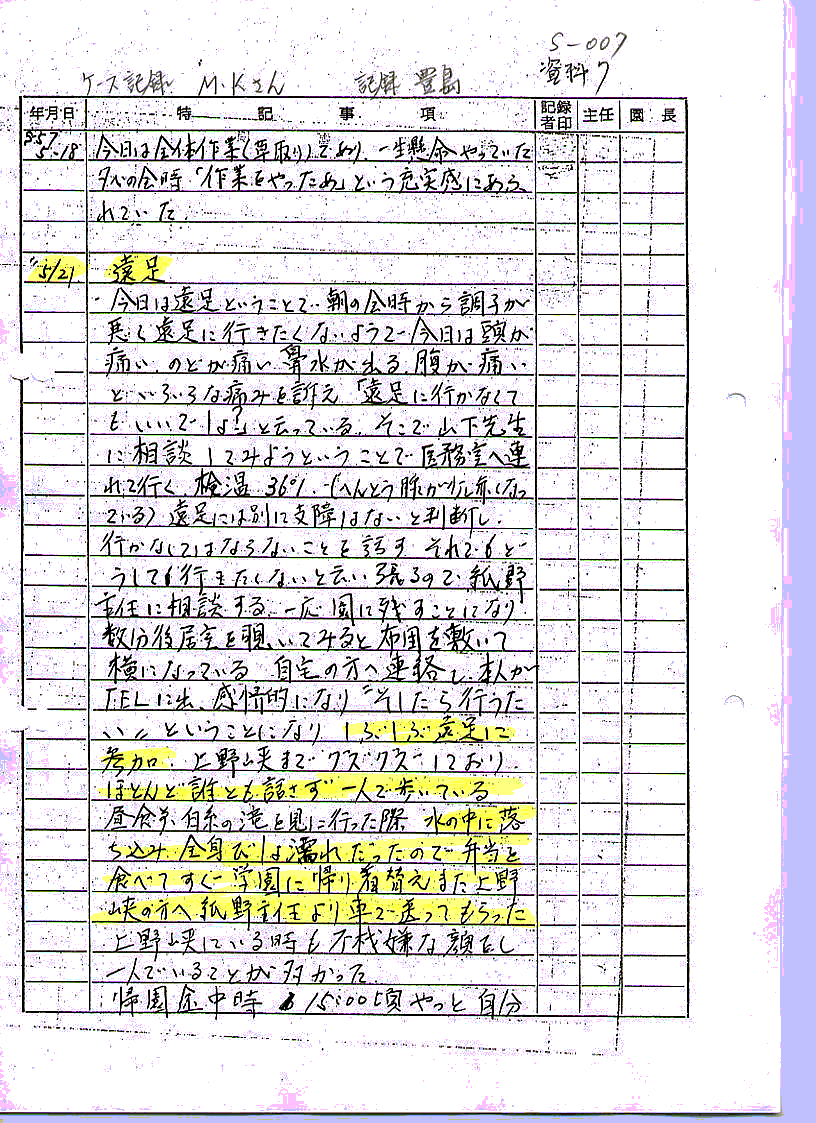 S-007
資料7
ケース記録 M.Kさん 記録 豊島
年月日 特記事項 記録者印 主任 園長
S57 5.18 今日は全体作業(草取り)であり、一生懸命やっていた
夕べの会時「作業をやったあ」という充実感にあふ
れていた。
〃5/21 遠足
今日は遠足ということで朝の会時から調子が
悪く遠足に行きたくないようで今日は頭が
痛い、のどが痛い、鼻水が出る、腹が痛い
といろいろな痛みを訴え「遠足に行かなくて
もいいでしょ?」と云っている。そこで山下先生
に相談してみようということで医務室へ連
れて行く。検温 36°1.(へんとう腺が少し赤くなっ
ている)遠足には別に支障はないと判断し、
行かなくてはならないことを話す それでもど
うしても行きたくないと云い張るので、紙野
主任に相談する。一応園に残すことになり
数分後居室を覗いてみると布団を敷いて
横になっている。自宅の方へ連絡し、本人が
TELに出、感情的になり〝そしたら行うた
い〟ということになり しぶしぶ遠足に
参加。上野峡までグズグズしており、
ほとんど誰とも話さず一人で歩いている
昼食前 白糸の滝を見に行った際 水の中に落
ち込み、全身びしょ濡れだったので弁当を
食べてすぐ学園に帰り着替えまた上野
峡の方へ紙野主任より車で送ってもらった
上野峡にいる時も不機嫌な顔をし
一人でいることが多かった
帰園途中時 15:00頃やっと自分